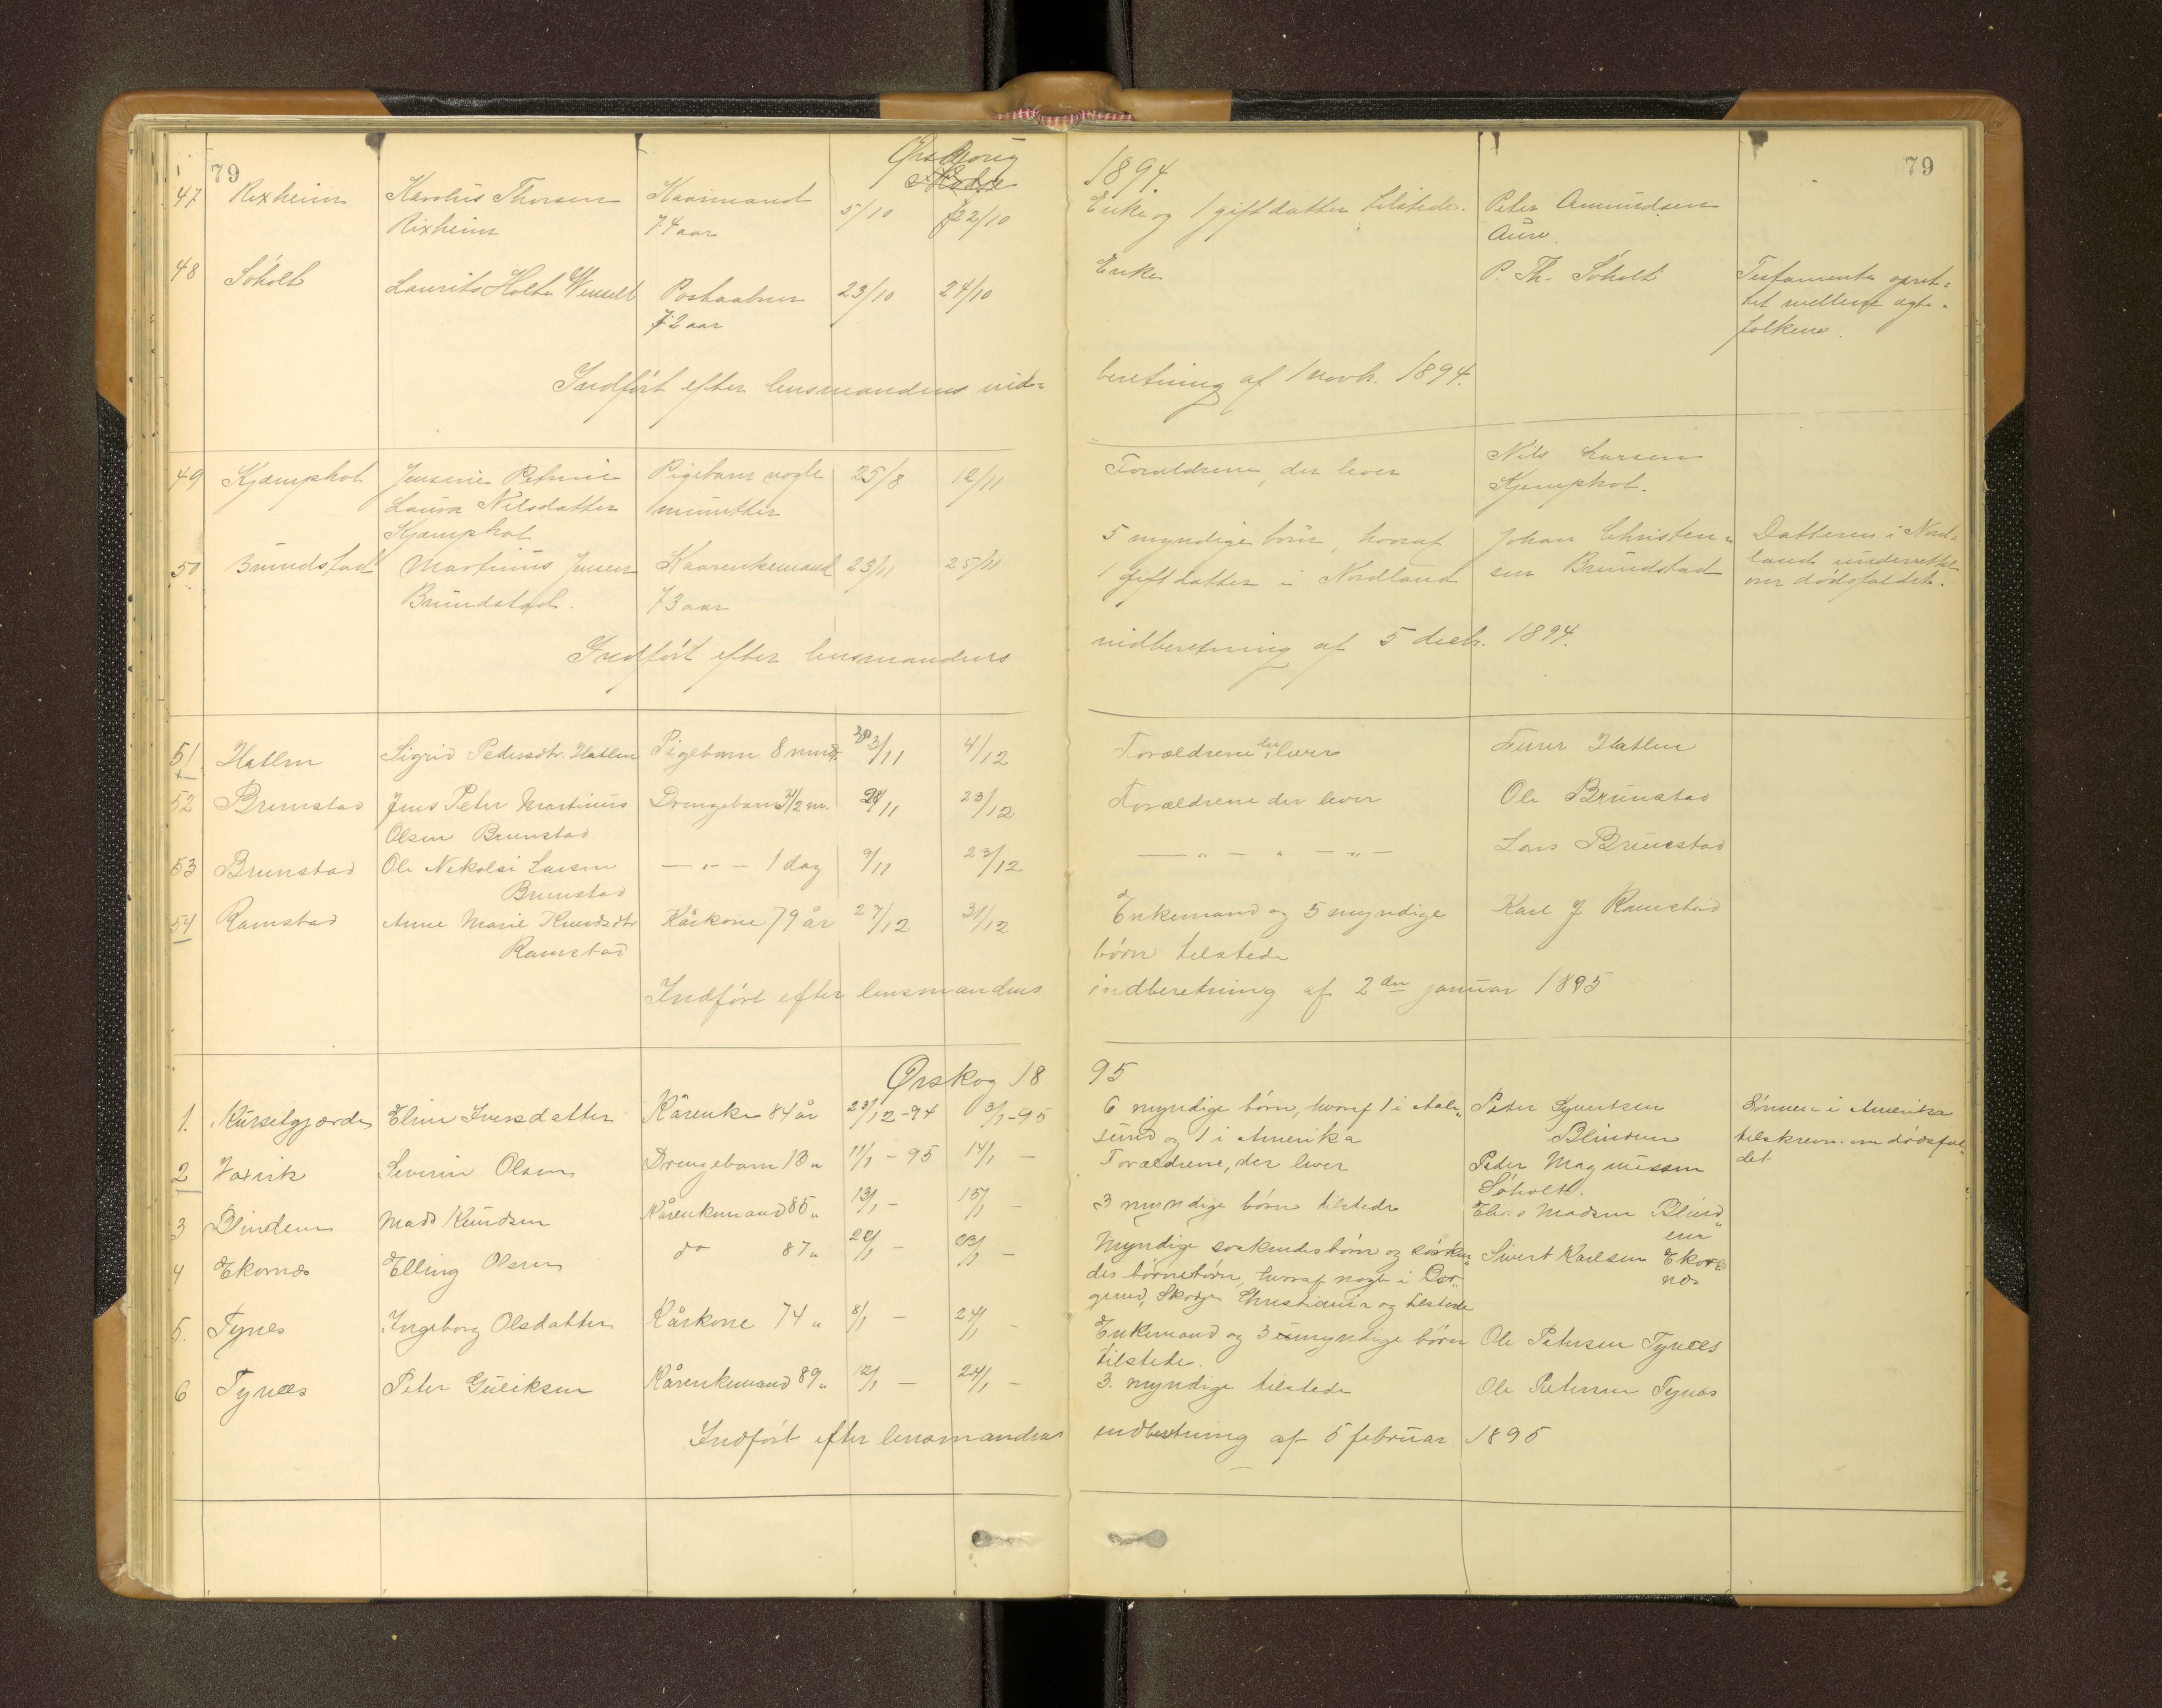 79
Ørskoug
1894.
79
47 Rixheim Karolus Thorsen Kaarmand 5/10 22/10 Enke og 1 gift datter tilstede. Peter Amundsen
Rixheim 74 aar Aure.
48 Søholt Laurits Holte Postaabner 23/10 24/10 Enke P. Th. Søholt Testamente opret-
72 aar tet mellem ægte-
folkene.
Indført efter lensmandens indberetning af 1 novb. 1894.
49 Kjæmphol Jensine Petrine Pigebarn nogle 25/8 12/11 Forældrene, der lever Nils Larsen
Laura Nilsdatter minutter Kjemphol.
Kjæmphol
50 Brundstad Martinus Jensen Kaarenkemand 23/11 25/11 5 myndige børn, hvoraf Johan Christen- Datteren i Nord-
Brundstad. 73 aar 1 gift datter i Nordland sen Brundstad land underrettet
om dødsfaldet.
Indført efter lensmandens indberetning af 5 decb. 1894.
51 Hatlen Sigrid Pedersdtr. Hatlen Pigebarn 8 mndr. 4/12 Forældrene der lever Hatlen
52 Brunstad Jens Peter Martinus Drengebarn 3 1/2 m. 23/12 Forældrene der lever Ole Brunstad
Olsen Brunstad
53 Brunstad Ole Nikolai Larsen — " — 1 dag 9/11 23/12 — " — " — " — Lars Brunstad
Brunstad
54 Ramstad Anne Marie Knudsdtr Kårkone 79 år 27/12 31/12 Enkemand og 5 myndige Karl J Ramstad
Ramstad børn tilstede
Indført efter lensmandens indberetning af 2den januar 1895
Ørskog 1895
1. Kursetgjærde Eline Iversdatter Kårenke 84 år 23/12-94 3/1-95 6 myndige børn, hvoraf 1 i Aale- Peter Syvertsen Sønnen i Amerika
sund og 1 i Amerika Blindem tilskreven om dødsfal-
det
2 Severin Olsen Drengebarn 13 " 11/1 - 95 14/1 - Forældrene, der lever Peder Magnussen
Søholt.
3 Blindem Mads Knudsen Kårenkemand 85 " 13/1 - 15/1 - 3 myndige børn tilstede Elias Madsen Blind-
em
4 Ekornes Elling Olsen do 87 " Myndige søskendebørn og søsken- Sivert Karlsen Ekor-
des børnebørn, hvoraf nogle i nes
grund, Skodje Christiania og tilstede
5. Tynes Ingeborg Olsdatter Kårkone 74 " 8/1 - 24/1 - Enkemand og 3 myndige børn Ole Petersen Tynes
tilstede.
6 Tynes Peter Guliksen Kårenkemand 89 " 12/1 - 24/1 - 3. myndige tilstede Ole Petersen Tynes
Indført efter lensmandens indberetning af 5 februar 1895